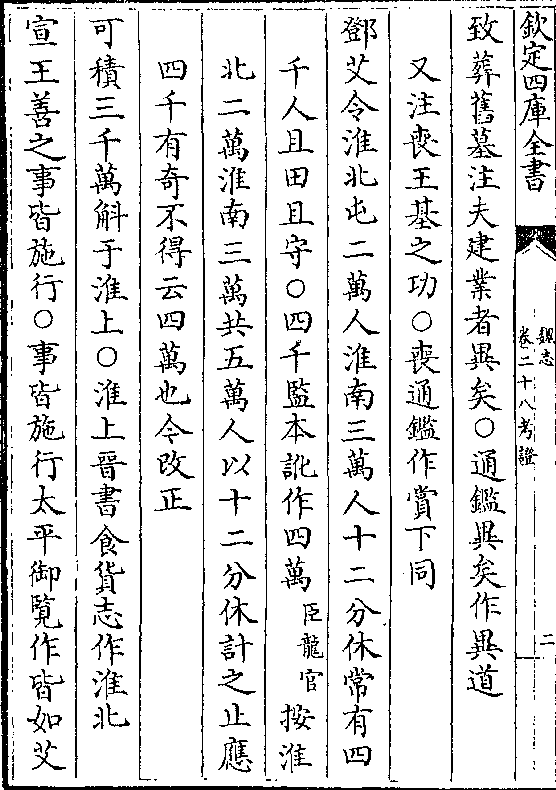 欽定四庫全書
魏志
卷二十八考證
二
致葬舊墓注夫建業者異矣○通鑑異矣作異道
又注喪王基之功○喪通鑑作賞下同
鄧艾令淮北屯二萬人淮南三萬人十二分休常有四
千人且田且守○四千監本訛作四萬臣龍官按淮
北二萬淮南三萬共五萬人以十二分休計之止應
四千有奇不得云四萬也令改正
可積三千萬斛于淮上○淮上晉書食貨志作淮北
宣王善之事皆施行○事皆施行太平御覽作皆如艾